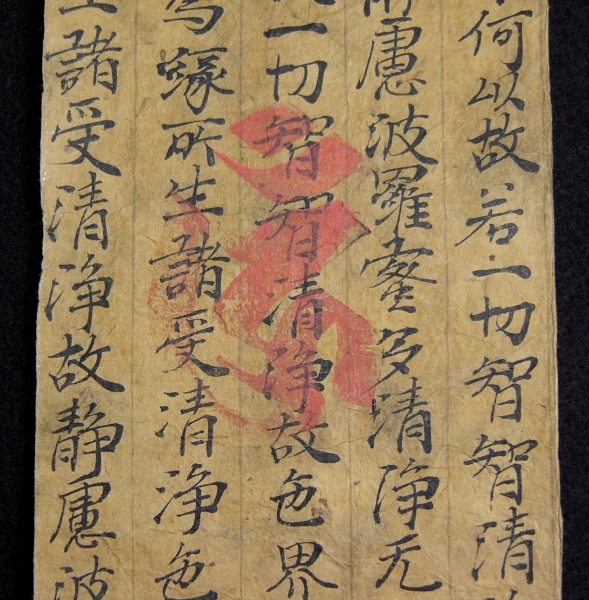 何以故若一切智智清
慮波羅蜜多清净无
一切智智清净故色界
為緣所生諸受清净色
諸受清净故静慮波